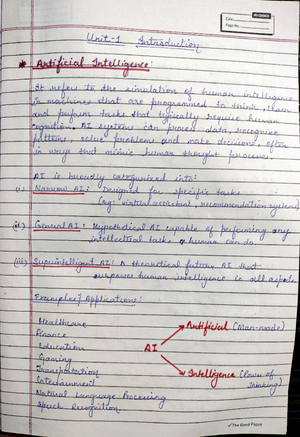 Date
Page No.
Unit-1 Introduction
* Artificial Intelligence:
It refers to the simulation of human intelligence
in machines that are programmed to think, learn
and perform tasks that typically require human
cognition. AI systems can process data, recognize
patterns, solve problems and make decisions, often
in ways that mimic human thought processes.
AI is broadly categorized into:
(i) Narrow AI: Designed for specific tasks
(eg: virtual assistant, recommendation systems)
(ii) General AI: Hypothetical AI capable of performing any
intellectual tasks a human can do.
(iii) Superintelligent AI: A theoretical future AI that
surpasses human intelligence in all aspects.
Examples / Applications:
Healthcare
Finance
Education
Gaming
Transportation
Entertainment
Natural Language Processing
Speech Recognition
AI
Artificial (Man-made)
Intelligence (Power of
thinking)
The Good Paper